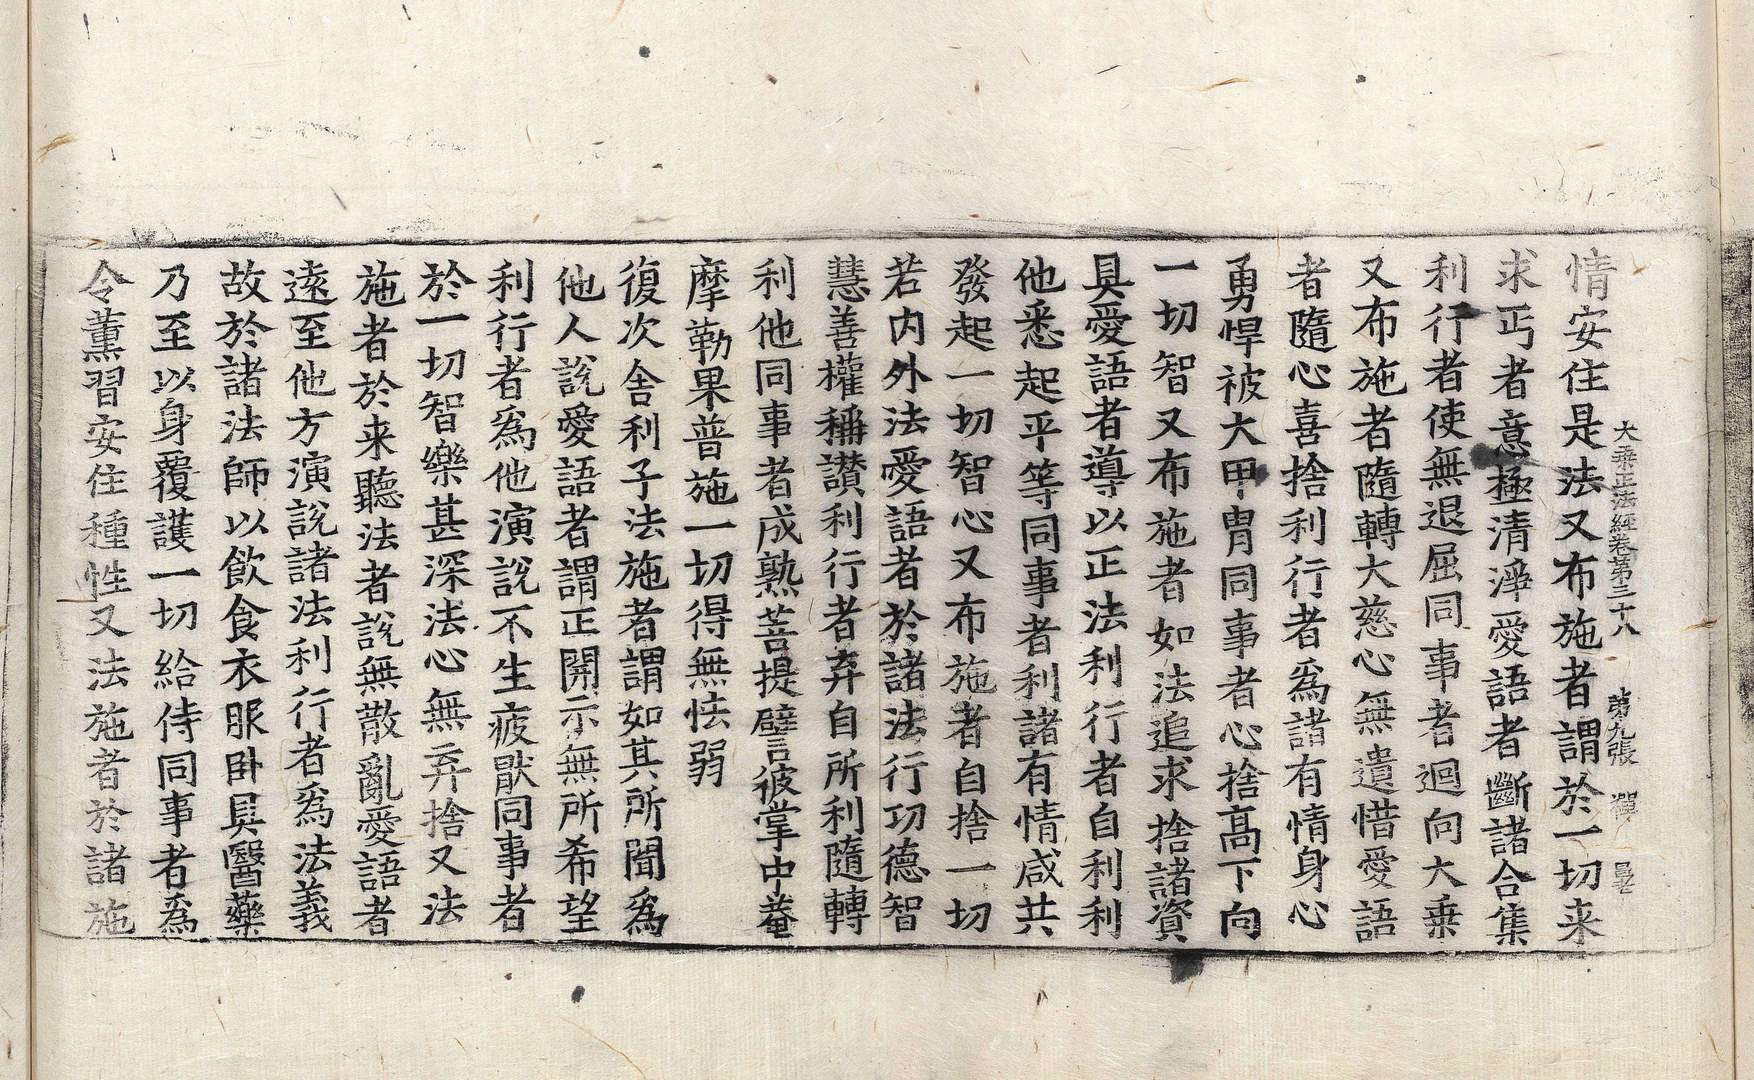 大乘正法經卷第三十八 第九張
情安住是法又布施者謂於一切来
求丐者意極清淨愛語者斷諸合集
利行者使無退屈同事者迴向大乗
又布施者隨轉大慈心無遺惜愛語
者隨心喜捨利行者爲諸有情身心
勇悍被大甲冑同事者心捨髙下向
一切智又布施者如法追求捨諸資
具愛語者導以正法利行者自利利
他悉起平等同事者利諸有情咸共
發起一切智心又布施者自捨一切
若内外法愛語者於諸法行功德智
慧善權稱讃利行者弃自所利隨轉
利他同事者成熟菩提譬彼掌中菴
摩勒果普施一切得無怯弱
復次舍利子法施者謂如其所聞爲
他人說愛語者謂正開示無所希望
利行者爲他演說不生疲猒同事者
於一切智樂甚深法心無弃捨又法
施者於来聽法者說無散亂愛語者
遠至他方演說諸法利行者爲法義
故於諸法師以飮食衣服卧具醫藥
乃至以身覆護一切給侍同事者爲
令薰習安住種性又法施者於諸施